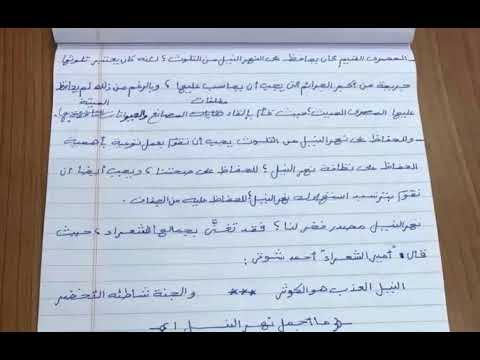 المصرى القديم كان يحافظ على النهر النيل من التلوث ؛ لكنه كان يعتبر تلويثها
جريمة من أكبر الجرائم التى يجب أن يحاسب عليها ؟ وبالرغم من ذلك لم يحافظ
مخلفات الميتة
عليها المصرى الحديث ؛ حيث قام بإلقاء المصانع والحيوانات
وللحفاظ على نهر النيل من التلوث يجب أن نقوم بعمل توعية بأهمية
الحفاظ على نظافة نهر النيل ؟ للحفاظ على صحتنا ؟ ويجب أيضا أن
نقوم بترشيد استهلاك نهر النيل للحفاظ عليه من الجفاف .
نهر النيل مصدر فخر لنا ؟ فقد تغنَّى بجمالها الشعراء ؟ حيث
قال " أمير الشعراء " أحمد شوقى :
النيل العذب هو الكوثر *** والجنة شاطئه الأخضر
ما أجمل نهر النيل !